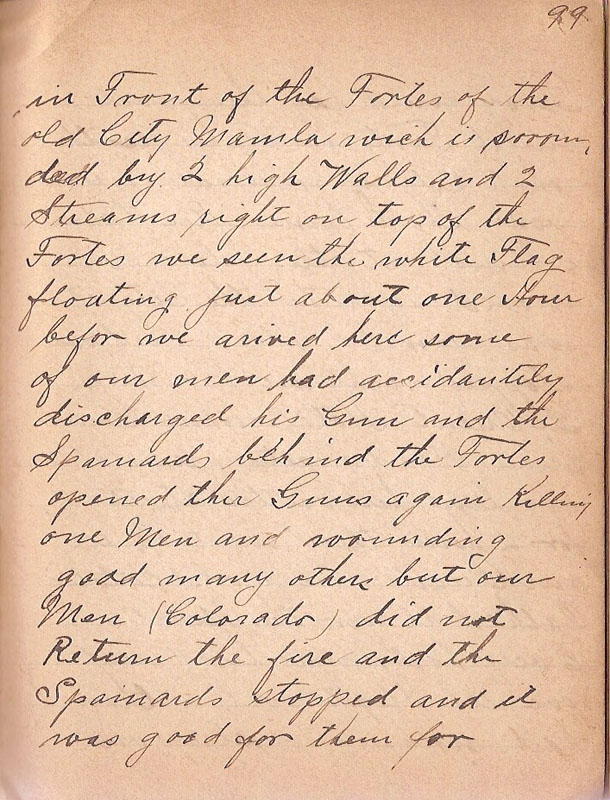 99
in Front of the Fortes of the
old City Manila wich is soroun,
ded by 2 high Walls and 2
Streams right on top of the
Fortes we seen the white Flag
floating just about one Hour
befor we arived here some
of our men had accidantily
discharged his Gun and the
Spaniards behind the Fortes
opened ther Guns again Killing
one Men and wounding
good many others but our
Men (Colorado) did not
Return the fire and the
Spaniards stopped and it
was good for them for